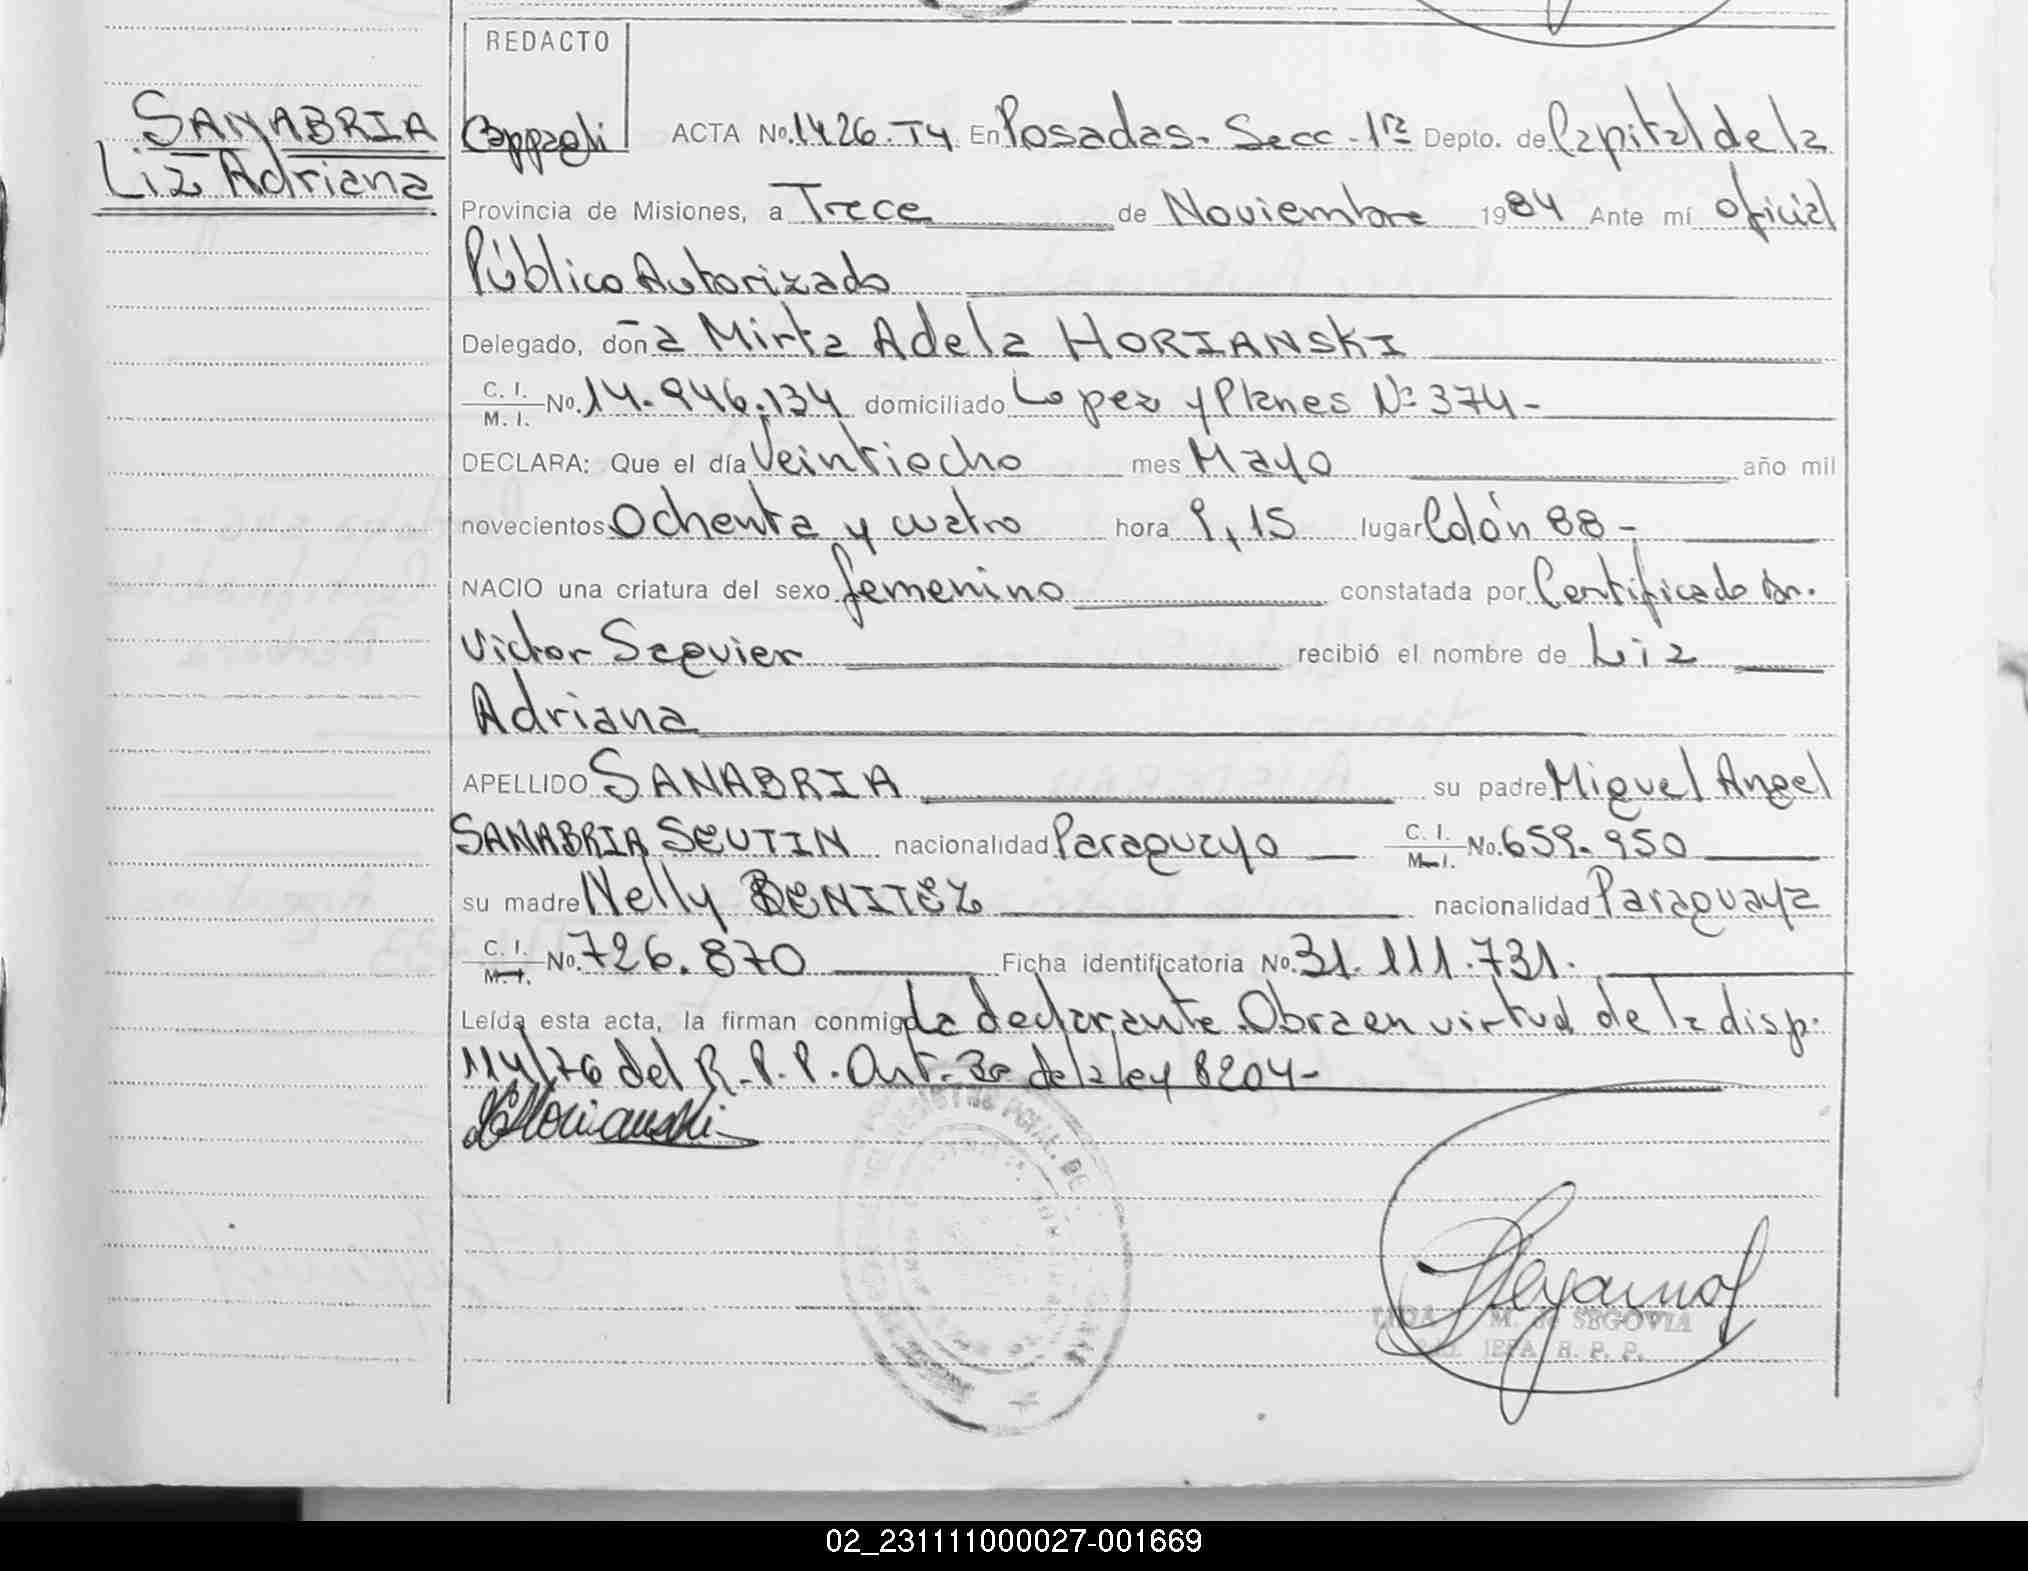 REDACTO
SANABRIA
Liz Adriana
Cappagli ACTA No. 1426.T4 En Posadas - Secc - 1ra Depto. de Capital de la
Provincia de Misiones, a Trece de Noviembre 1984 Ante mí Oficial
Público Autorizado
Delegado, doña Mirta Adela HORIANSKI
C. I. M. I. No. 14.946.134 domiciliado Lopez y Planes Nº 374-
DECLARA: Que el día Veintiocho mes Mayo año mil
novecientos Ochenta y cuatro hora 9,15 lugar Colón 88-
NACIO una criatura del sexo femenino constatada por Certificado Dr.
Victor Seguier recibió el nombre de Liz
Adriana
APELLIDO SANABRIA su padre Miguel Angel
SANABRIA SEUTIN nacionalidad Paraguayo C. I. M. I. No. 659.950
su madre Nelly BENITEZ nacionalidad Paraguaya
C. I. M. I. No. 726.870 Ficha identificatoria No. 31.111.731.
Leída esta acta, la firman conmigo la declarante. Obra en virtud de la disp.
114/76 del R.P.P. Art. 30 de la ley 8204-
Horianski
M. de SEGOVIA
R. P. P.
02_231111000027-001669